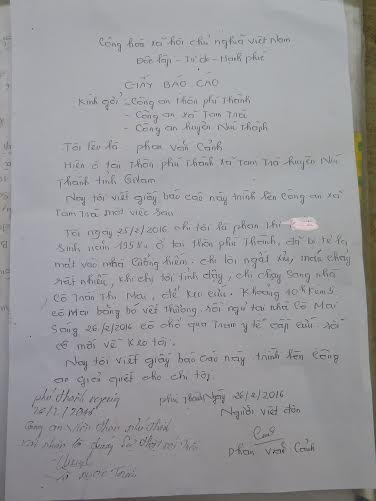 Cộng hoà xã hội chủ nghĩa việt Nam
Độc lập - Tự do - Hạnh phúc
GIẤY BÁO CÁO
Kính gởi - Công an thôn phú Thành
- Công an xã Tam Trà
- Công an huyện Núi Thành
Tôi tên là phan văn Cảnh
Hiện ở tại Thôn phú Thành xã Tam Trà huyện Núi
Thành tỉnh
Nay tôi viết giấy báo cáo này trình lên Công an xã
Tam Trà một việc sau
Tối ngày 25/2/2016 chị tôi là phan Thị
Sinh năm 1958. ở tại thôn phú Thành, đã bị té
mặt vào nhà chị lời ngất xỉu, máu chảy
rất nhiều, khi chị tôi tỉnh dậy, chị chạy Sang nhà
cô Trần Thị Mai, để kêu cứu. Khoảng
cô Mai băng bó vết thương. rồi ngủ tại nhà Cô Mai
Sang 26/2/2016 cô chở qua Trạm y tế cấp cứu rồi
cô mới về kêu tôi.
Nay tôi viết giấy báo cáo này trình lên Công
an giải quyết cho chị tôi.
phú Thành ngày 26/2/2016
Người viết đơn
phan văn Cảnh
phú Thành ngày
26/2/2016
Công an viên thôn phú Thành